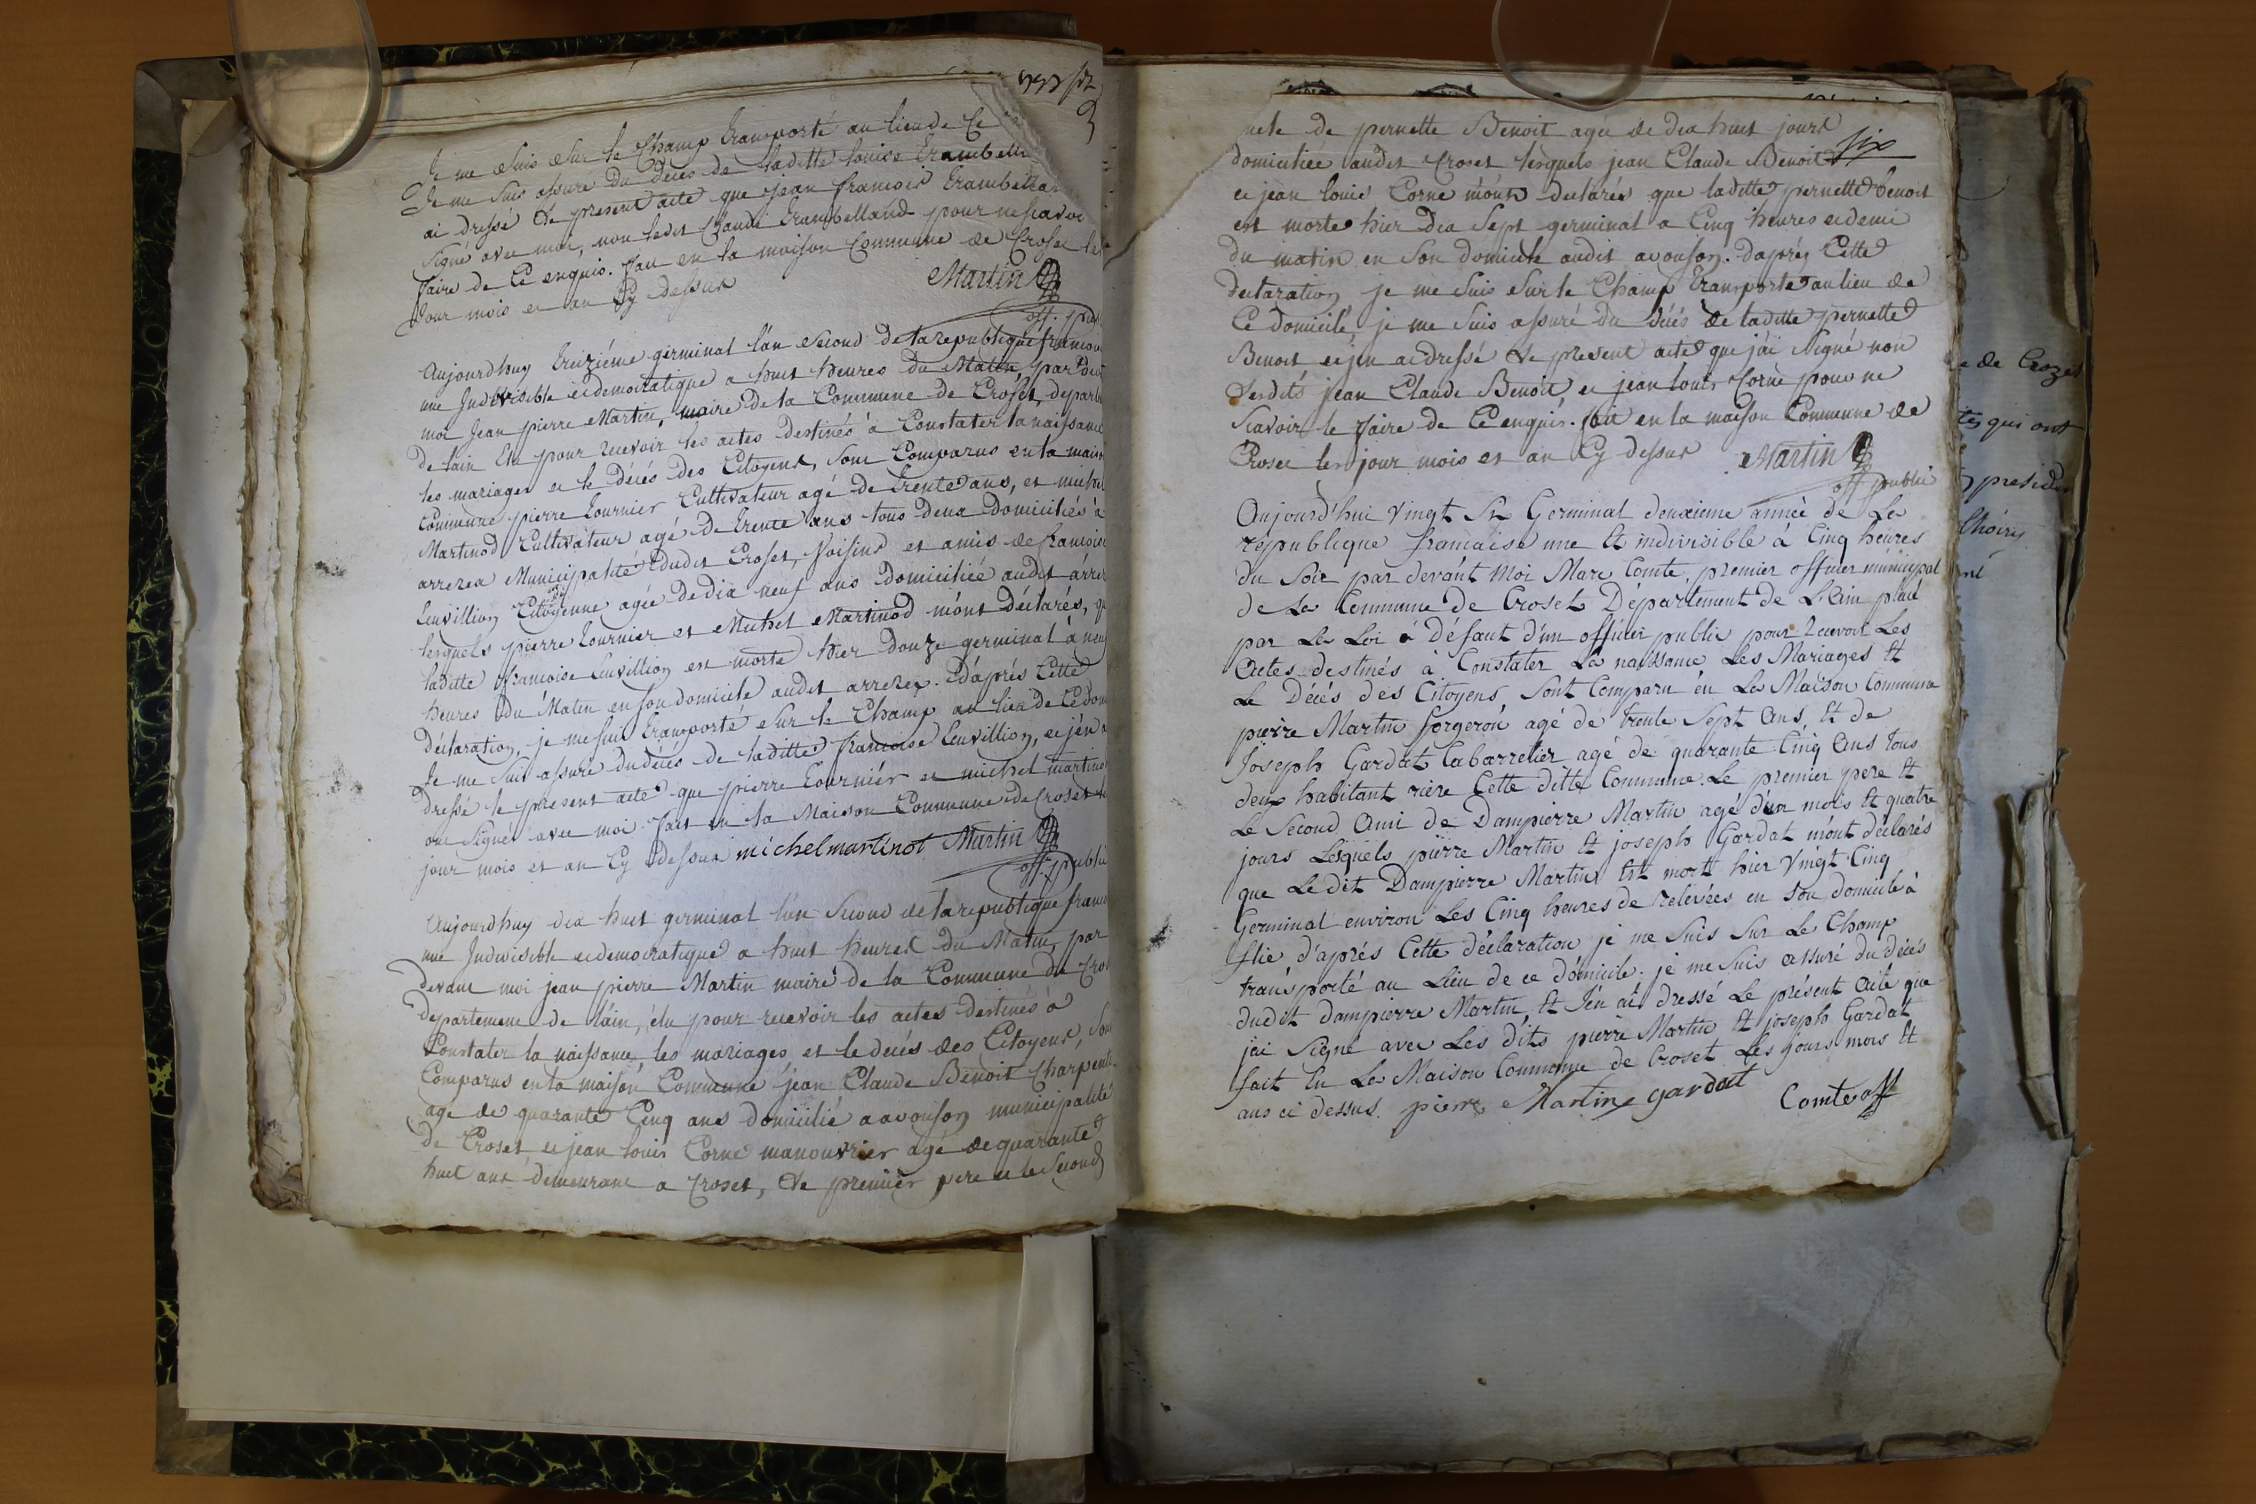 Je me suis sur le Champ transporté au lieu de Ce
Je me suis assuré du décés de laditte louise trambell
ai dressé le present acte que jean francois trambella
signé avec moi, non ledit Claude trambelland pour ne scavoi
faire de Ce enquis. fait en la maison Commune de Croset le
jour mois et an Cy dessus Martin
off. pu
Aujourdhuy treizième germinal l'an second de la republique francois
une Indivisible et democratique a huit heures du Matin par de
moi Jean pierre Martin, maire de la Commune de Croset, departe
de lain Elu pour recevoir les actes destinés à Constater la naissance
les mariages et le décés des Citoyens, sont Comparus en la maison
Commune pierre tournier Cultivateur agé de trente ans, et michel
Martinod Cultivateur agé de trente ans tous deux domiciliés à
arrerex Municipalité dudit Croset, voisins et amis de francoise
Cuvillion Citoyenne agée de dix neuf ans domiciliée audit arrer
lesquels pierre tournier et Michel Martinod m'ont déclarés, q
laditte francoise Cuvillion est morte hier douze germinal à neuf
heures du Matin en son domicile audit arrerex. D'après Cette
déclaration, je me suis transporté sur le Champ au lieu de Ce dom
Je me suis assuré du décés de laditte francoise Cuvillion, et j'en a
dressé le present acte que pierre tournier et michel martino
ont signé avec moi fait en la Maison Commune de Croset l
jour mois et an Cy dessus michel martinot Martin
off. public
Aujourdhuy dix huit germinal l'an second de la republique franc
une Indivisible et democratique a huit heures du Matin, par
devant moi jean pierre Martin maire de la Commune de Cro
departement de l'ain, élu pour recevoir les actes destinés à
Constater la naissance les mariages et le décés des Citoyens, son
Comparus en la maison Commune jean Claude Benoit Charpenti
agé de quarante Cinq ans domicilié a avouson municipalité
de Croset et jean louis Corne manouvrier agé de quarante
huit ans demeurant a Croset, le premier pere et le second
six
de pernette Benoit agée de dix huit jours
domiciliée audit Croset lesquels jean Claude Benoit
et jean louis Corne m'ont déclarés que laditte pernette Benoit
est morte hier dix sept germinal a Cinq heures et demi
du matin en son domicile audit avouson. D'après Cette
declaration je me suis sur le Champ transporté au lieu de
Ce domicile, je me suis assuré du décés de laditte pernette
Benoit et j'en ai dressé le present acte que j'ai signé non
lesdits jean Claude Benoit et jean louis Corne pour ne
Scavoir le faire de Ce enquis. fait en la maison Commune de
Croset les jour mois et an Cy dessus Martin
off public
Aujourd'hui vingt Six Germinal deuxieme année de La
république francaise une Et indivisible à Cinq heures
du Soir par devant Moi Marc Comte, premier officier municipal
de La Commune de Croset Département de L'Ain placé
par La Loi à Défaut d'un officier public pour recevoir Les
Actes destinés à Constater La naissance Les Mariages Et
Le Décés des Citoyens, Sont Comparu en La Maison Commune
pierre Martin forgeron agé de trente Sept Ans, Et de
Joseph Gardat Cabarretier agé de quarante Cinq Ans tous
deux habitant rière Cette ditte Commune. Le premier pere Et
Le Second Ami de Dampierre Martin agé d'un mois Et quatre
jours Lesquels pierre Martin Et joseph Gardat m'ont déclarés
que Ledit Dampierre Martin Est mort hier vingt Cinq
Germinal environ Les Cinq heures de relevées en son domicile à
flie d'après Cette déclaration je me Suis Sur Le Champ
transporté au Lieu de ce domicile. je me Suis assuré du décés
dudit dampierre Martin, Et J'en ai dressé Le présent Acte que
j'ai Signé avec Les dits pierre Martin Et joseph Gardat
fait En La Maison Commune de Croset Les jours mois Et
ans ci dessus. pierre Martin gardat Comte off
de Crozet
qui ont
presider